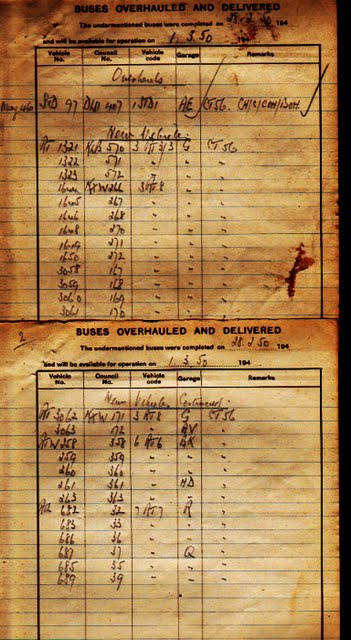 BUSES OVERHAULED AND DELIVERED
The undermentioned buses were completed on 28.2.50 194
and will be available for operation on 1.3.50 194
Vehicle No. Council No. Vehicle code Garage Remarks
Overhauls
STD 97 DLU 407 1STD1 AE CT56.
New Vehicles
1321 570 3 3/3 G CT56
1322 571 " " "
1323 572 " " "
266 3 8 " "
267 " " "
1646 268 " " "
1648 270 " " "
1649 271 " " "
1650 272 " " "
3058 167 " " "
3059 168 " " "
3060 169 " " "
3061 170 " " "
2
BUSES OVERHAULED AND DELIVERED
The undermentioned buses were completed on 28.2.50 194
and will be available for operation on 1.3.50 194
Vehicle No. Council No. Vehicle code Garage Remarks
New Vehicles Continued
3062 171 3 8 G CT56
3063 172 " AV "
358 358 6 6 "
359 359 " " "
360 360 " " "
361 361 " HD "
363 363 " " "
682 32 7 7 R "
683 33 " " "
686 36 " " "
687 37 " Q "
685 35 " " "
689 39 " " "